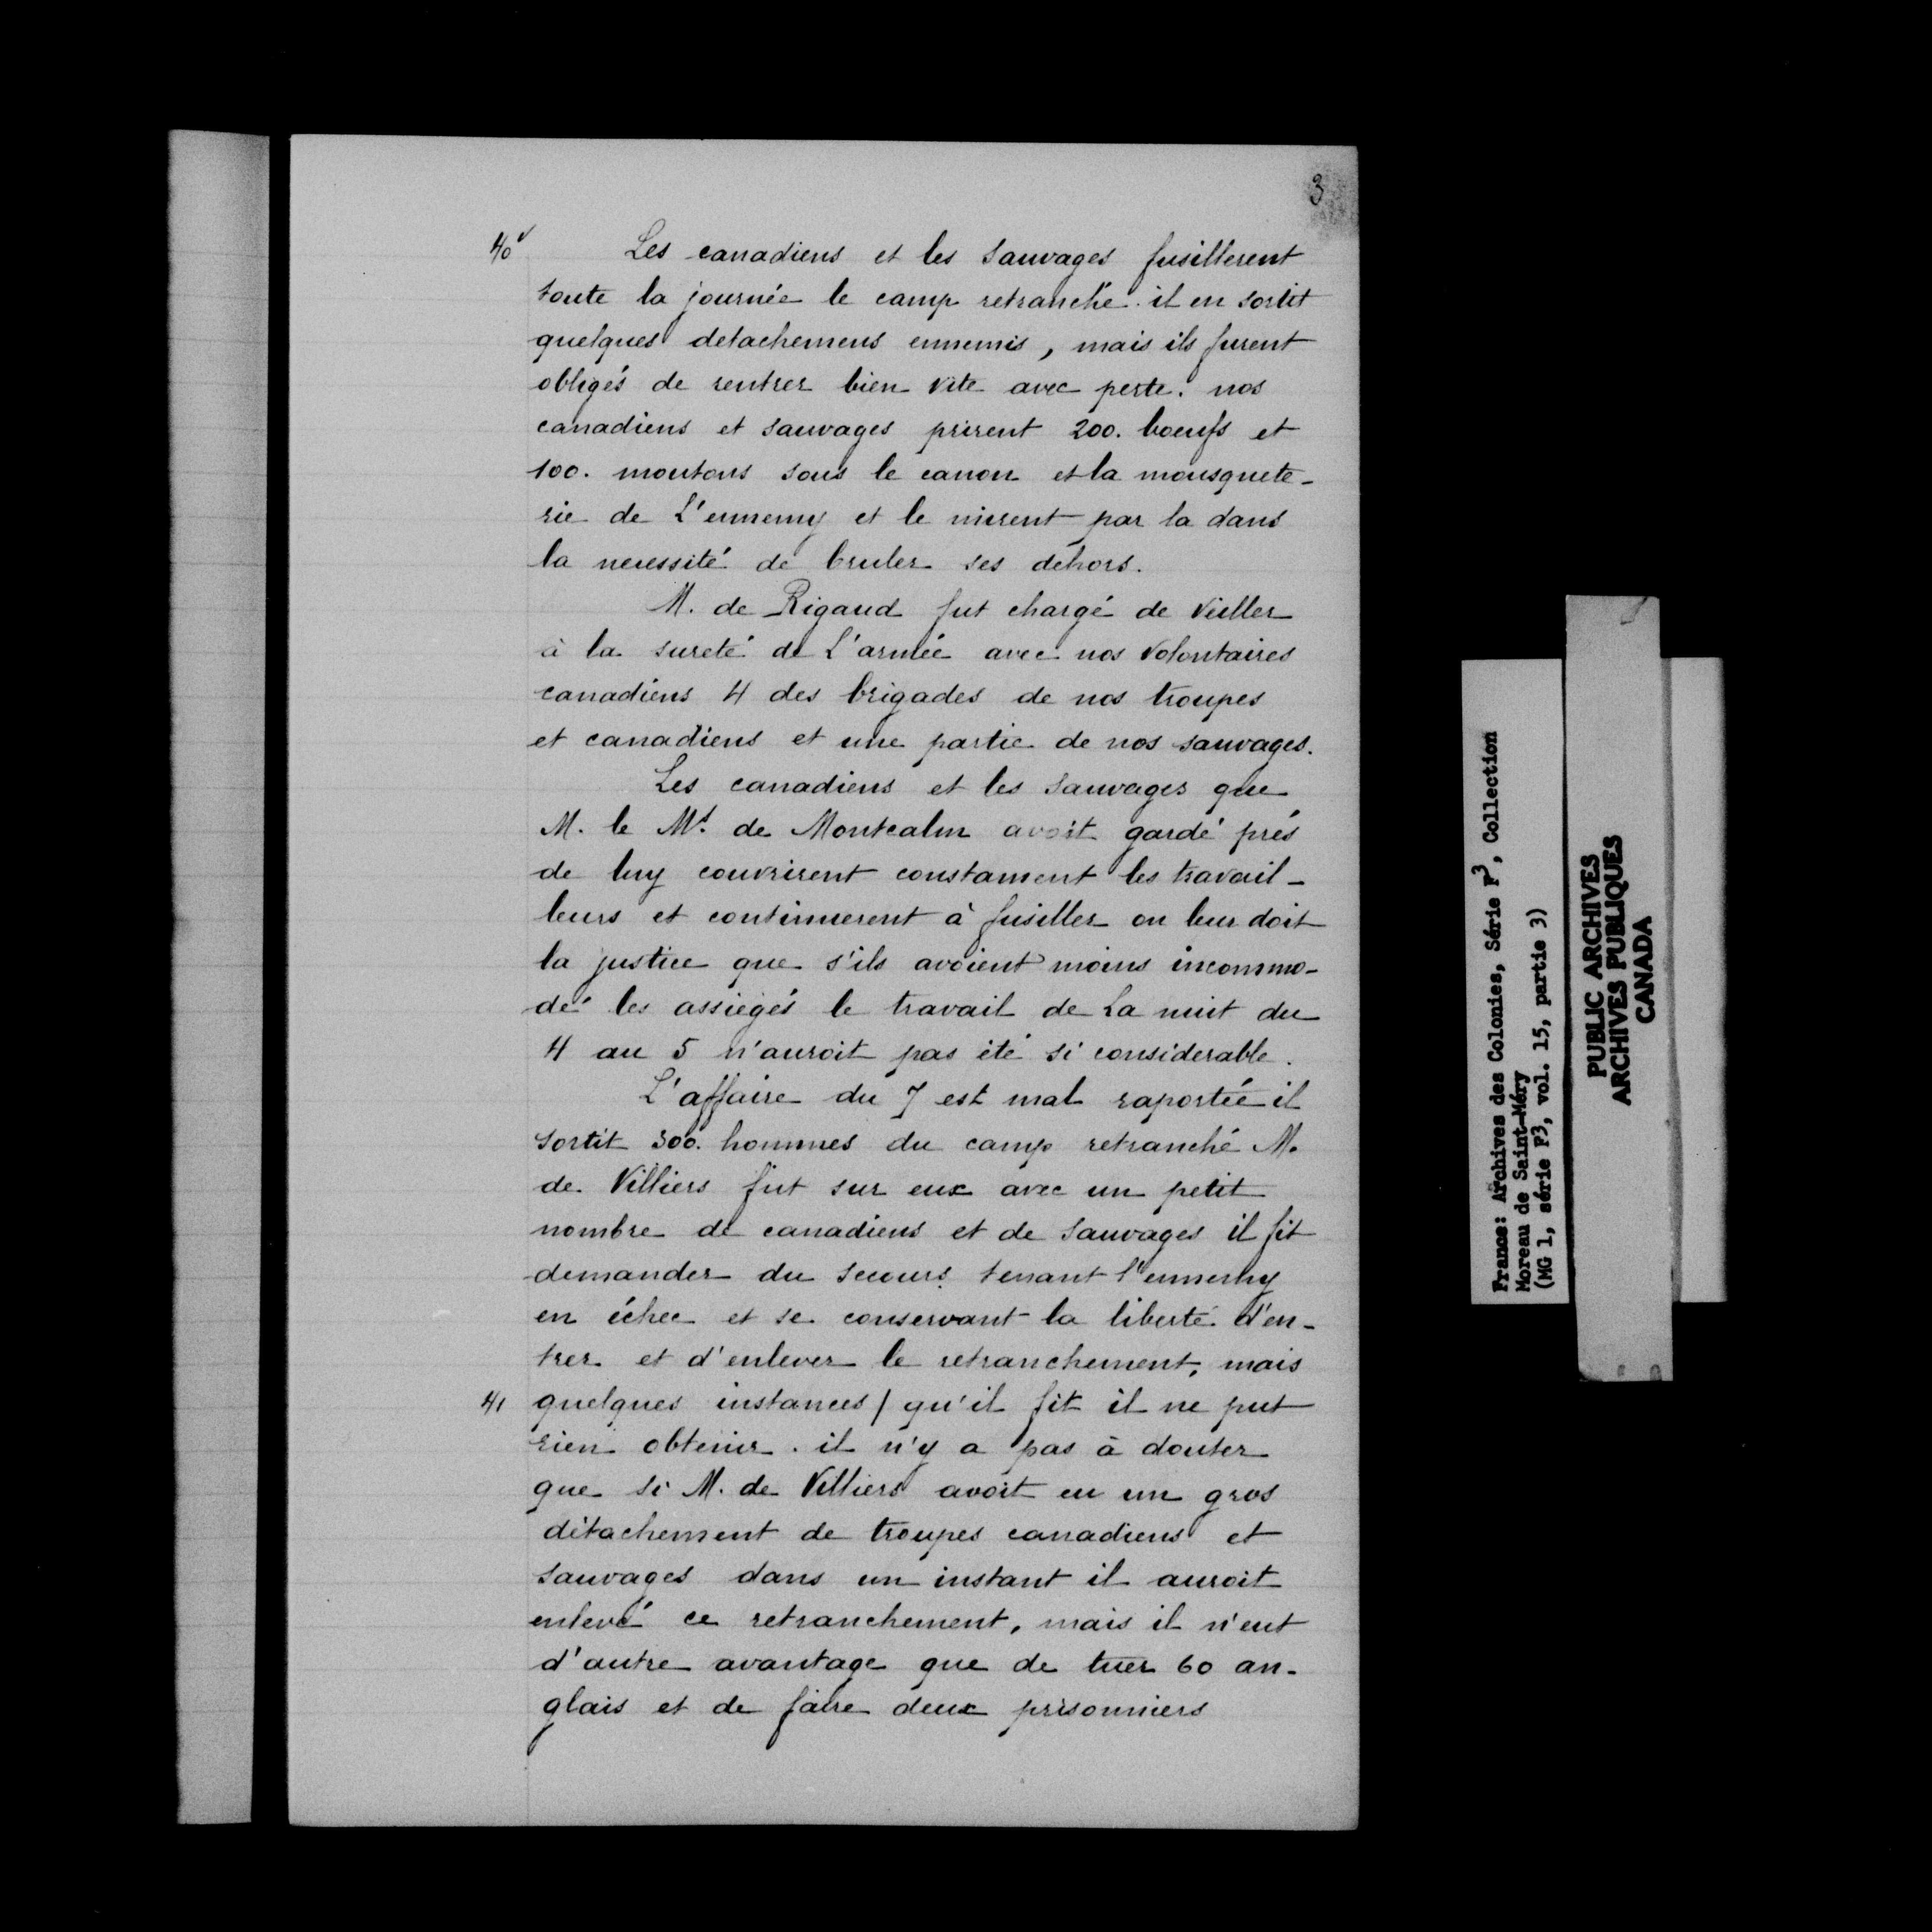 3
40v
Les canadiens et les Sauvages fusillerent
toute la journée le camp retranché. il en sortit
quelques detachemens ennemis, mais ils furent
obligés de rentrer bien vite avec perte. nos
canadiens et sauvages prirent 200. boeufs et
100. moutons sous le canon et la mousquete-
rie de L'ennemy et le mirent par la dans
la necessité de bruler ses dehors.
M. de Rigaud fut chargé de Veiller
à la sureté de L'armée avec nos Volontaires
canadiens 4 des brigades de nos troupes
et canadiens et une partie de nos sauvages.
Les canadiens et les Sauvages que
M. le Mis. de Montcalm avoit gardé prés
de luy couvrirent constament les travail-
leurs et continuerent à fusiller on leur doit
la justice que s'ils avoient moins incommo-
dé les assiegés le travail de La nuit du
4 au 5 n'auroit pas été si considerable.
L'affaire du 7 est mal raportée il
sortit 500. hommes du camp retranché M.
de Villiers fut sur eux avec un petit
nombre de canadiens et de Sauvages il fit
demander du secours tenant l'ennemy
en échec et se conservant la liberté d'en-
trer et d'enlever le retranchement, mais
41 quelques instances / qu'il fit il ne put
rien obtenir. il n'y a pas à douter
que si M. de Villiers avoit eu un gros
détachement de troupes canadiens et
sauvages dans un instant il auroit
enlevé ce retranchement, mais il n'eut
d'autre avantage que de tuer 60 an-
glais et de faire deux prisonniers
France: Archives des Colonies, Série F3, Collection
Moreau de Saint-Méry
(MG 1, série F3, vol. 15, partie 3)
PUBLIC ARCHIVES
ARCHIVES PUBLIQUES
CANADA